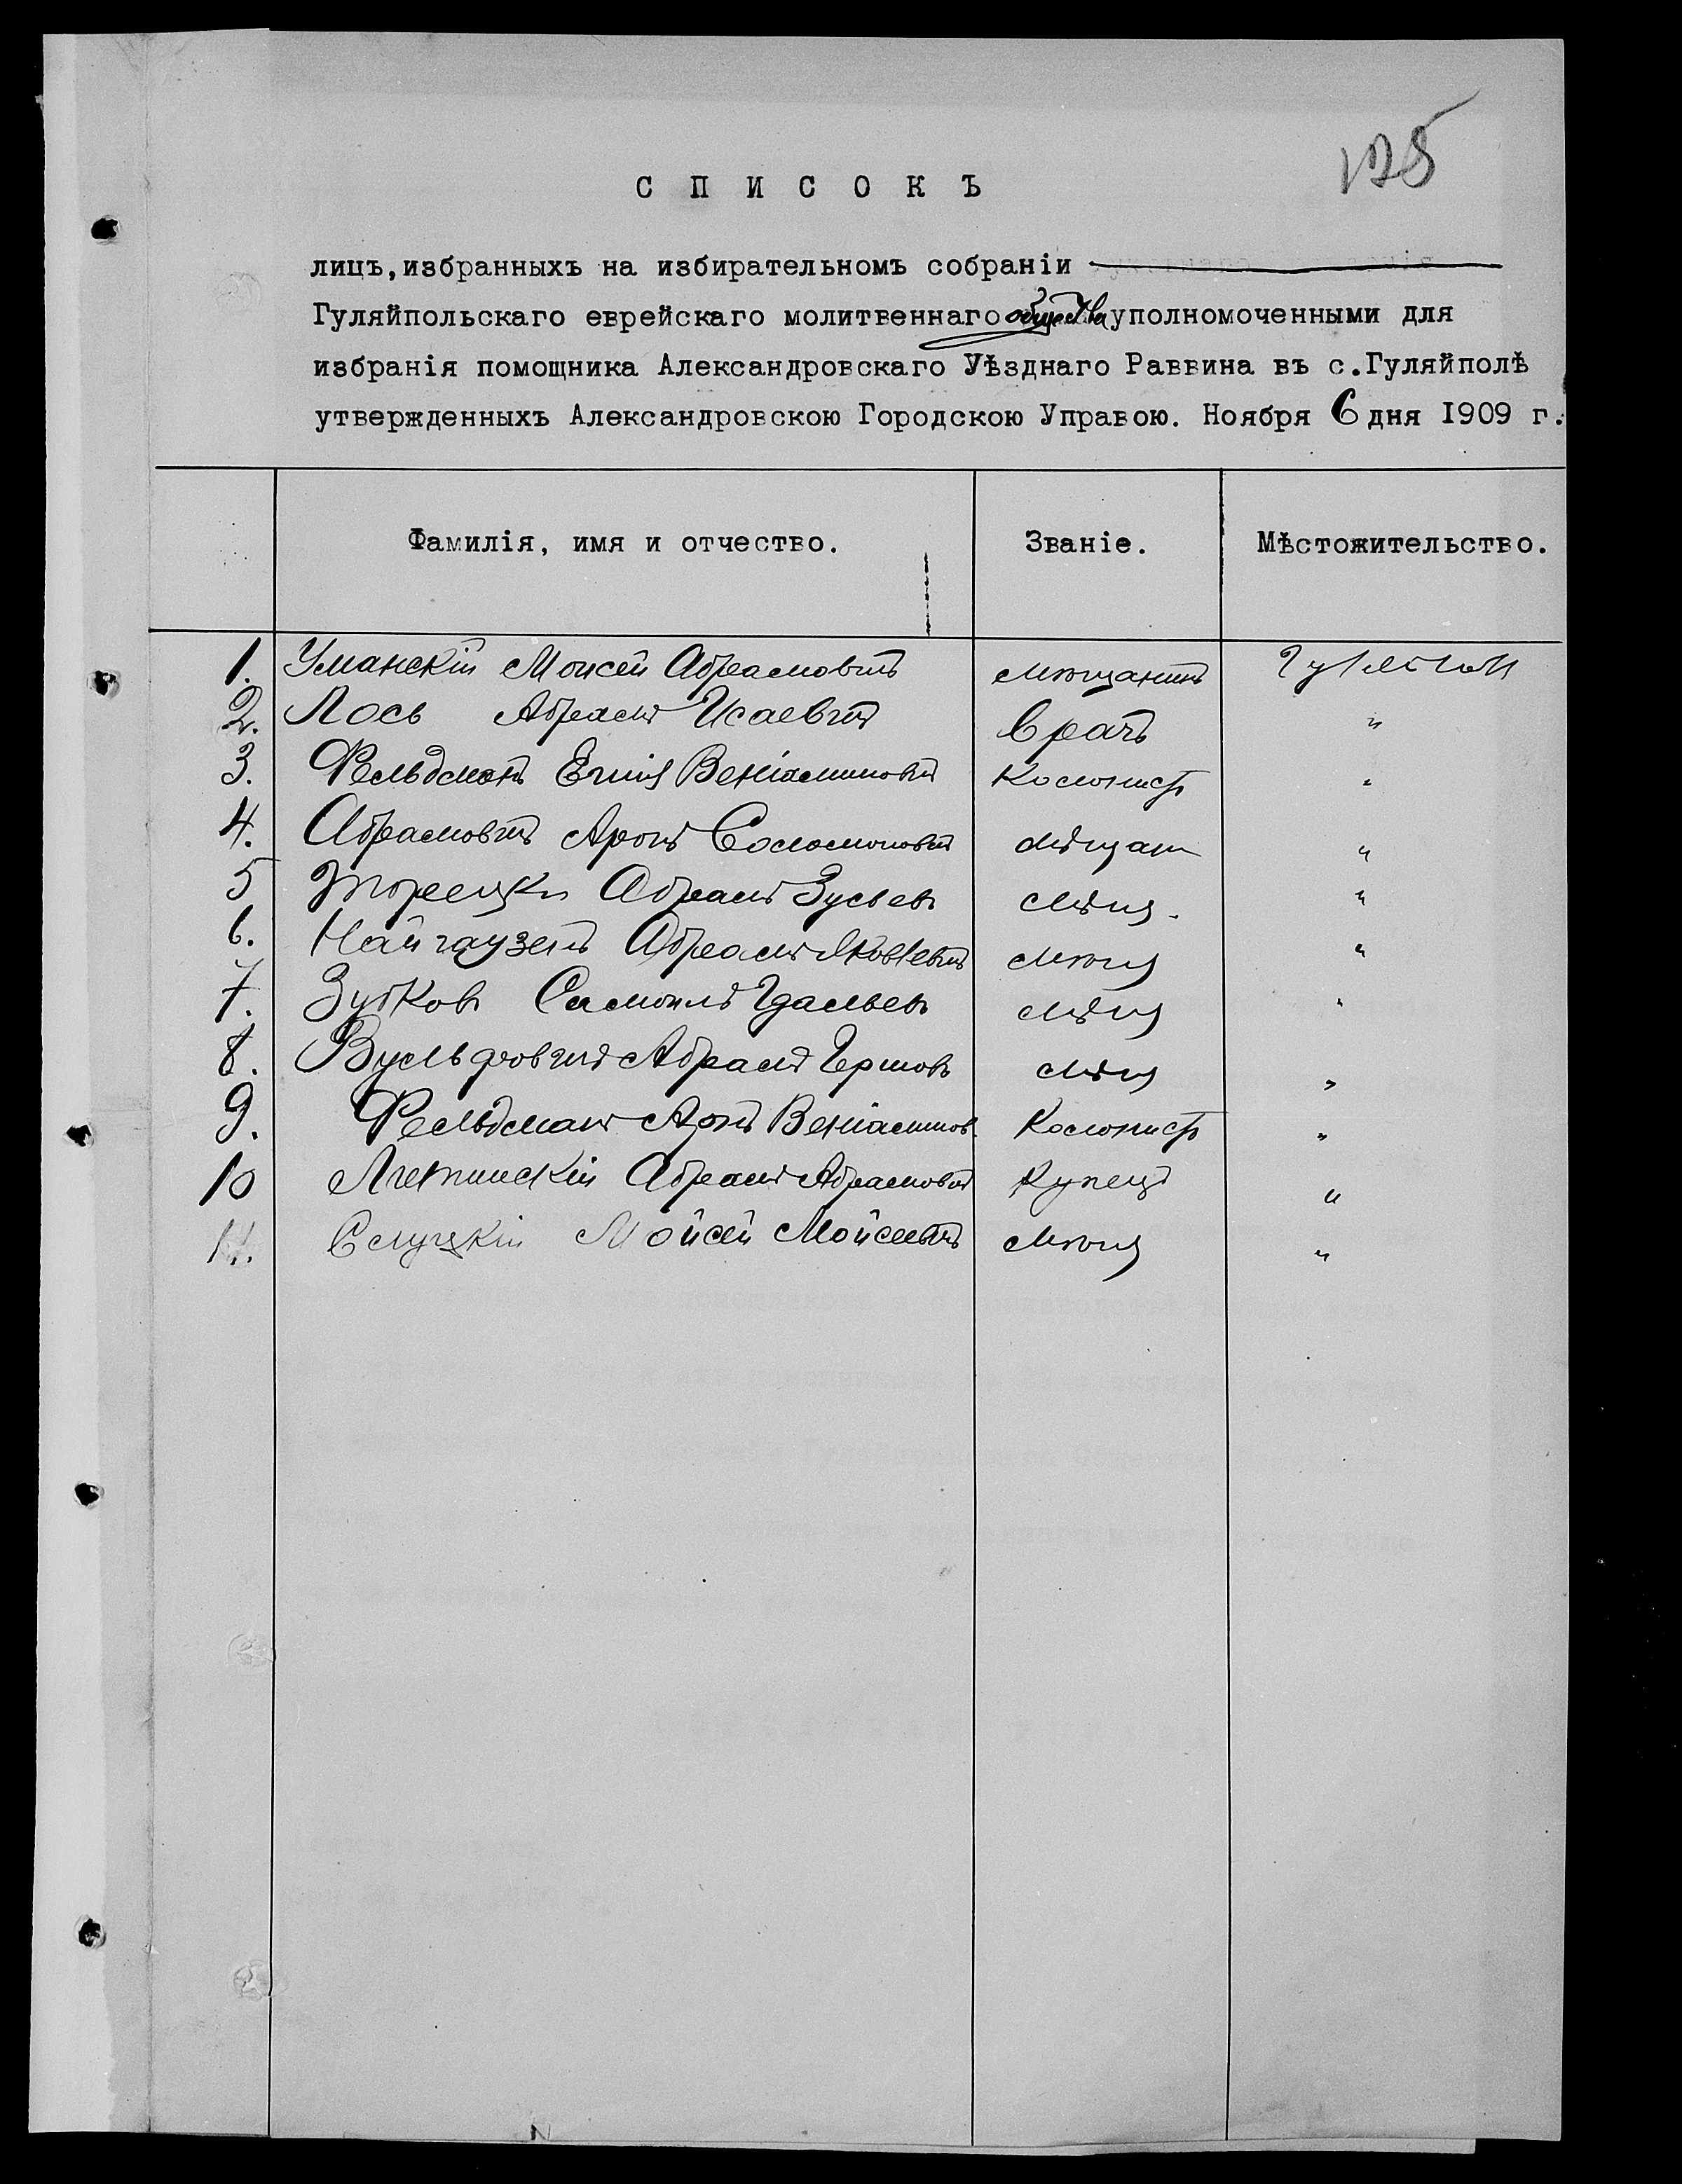 125
СПИСОКЪ
лицъ,избранныхъ на избирательномъ собраніи
Гуляйпольскаго еврейскаго молитвеннаго общества уполномоченными для
избранія помощника Александровскаго Уѣзднаго Раввина въ с.Гуляйполѣ
утвержденныхъ Александровскою Городскою Управою. Ноября 6 дня 1909 г.
Фамилія, имя и отчество. Званіе. Мѣстожительство.
1. Уманскій Моисей Абрамовичъ мѣщанинъ
2. Лось Абрамъ Исаевичъ врачъ "
3. Фельдманъ Веніаминовичъ Колонистъ "
4. Абрамовичъ Аронъ Соломоновичъ мѣщан "
5 Абрамъ Зусьев мѣщ. "
6. Найгаузенъ Абрамъ Яковлевичъ мѣщ "
7. Зутков Самоилъ Гдальев мѣщ "
8. Вульфовичъ Абрамъ Гершовъ мѣщ "
9. Фельдманъ Аронъ Веніаминов. Колонистъ "
10 Абрамъ Абрамовичъ Купецъ "
11. Слуцкій Мойсей Мойсеевичъ мѣщ "